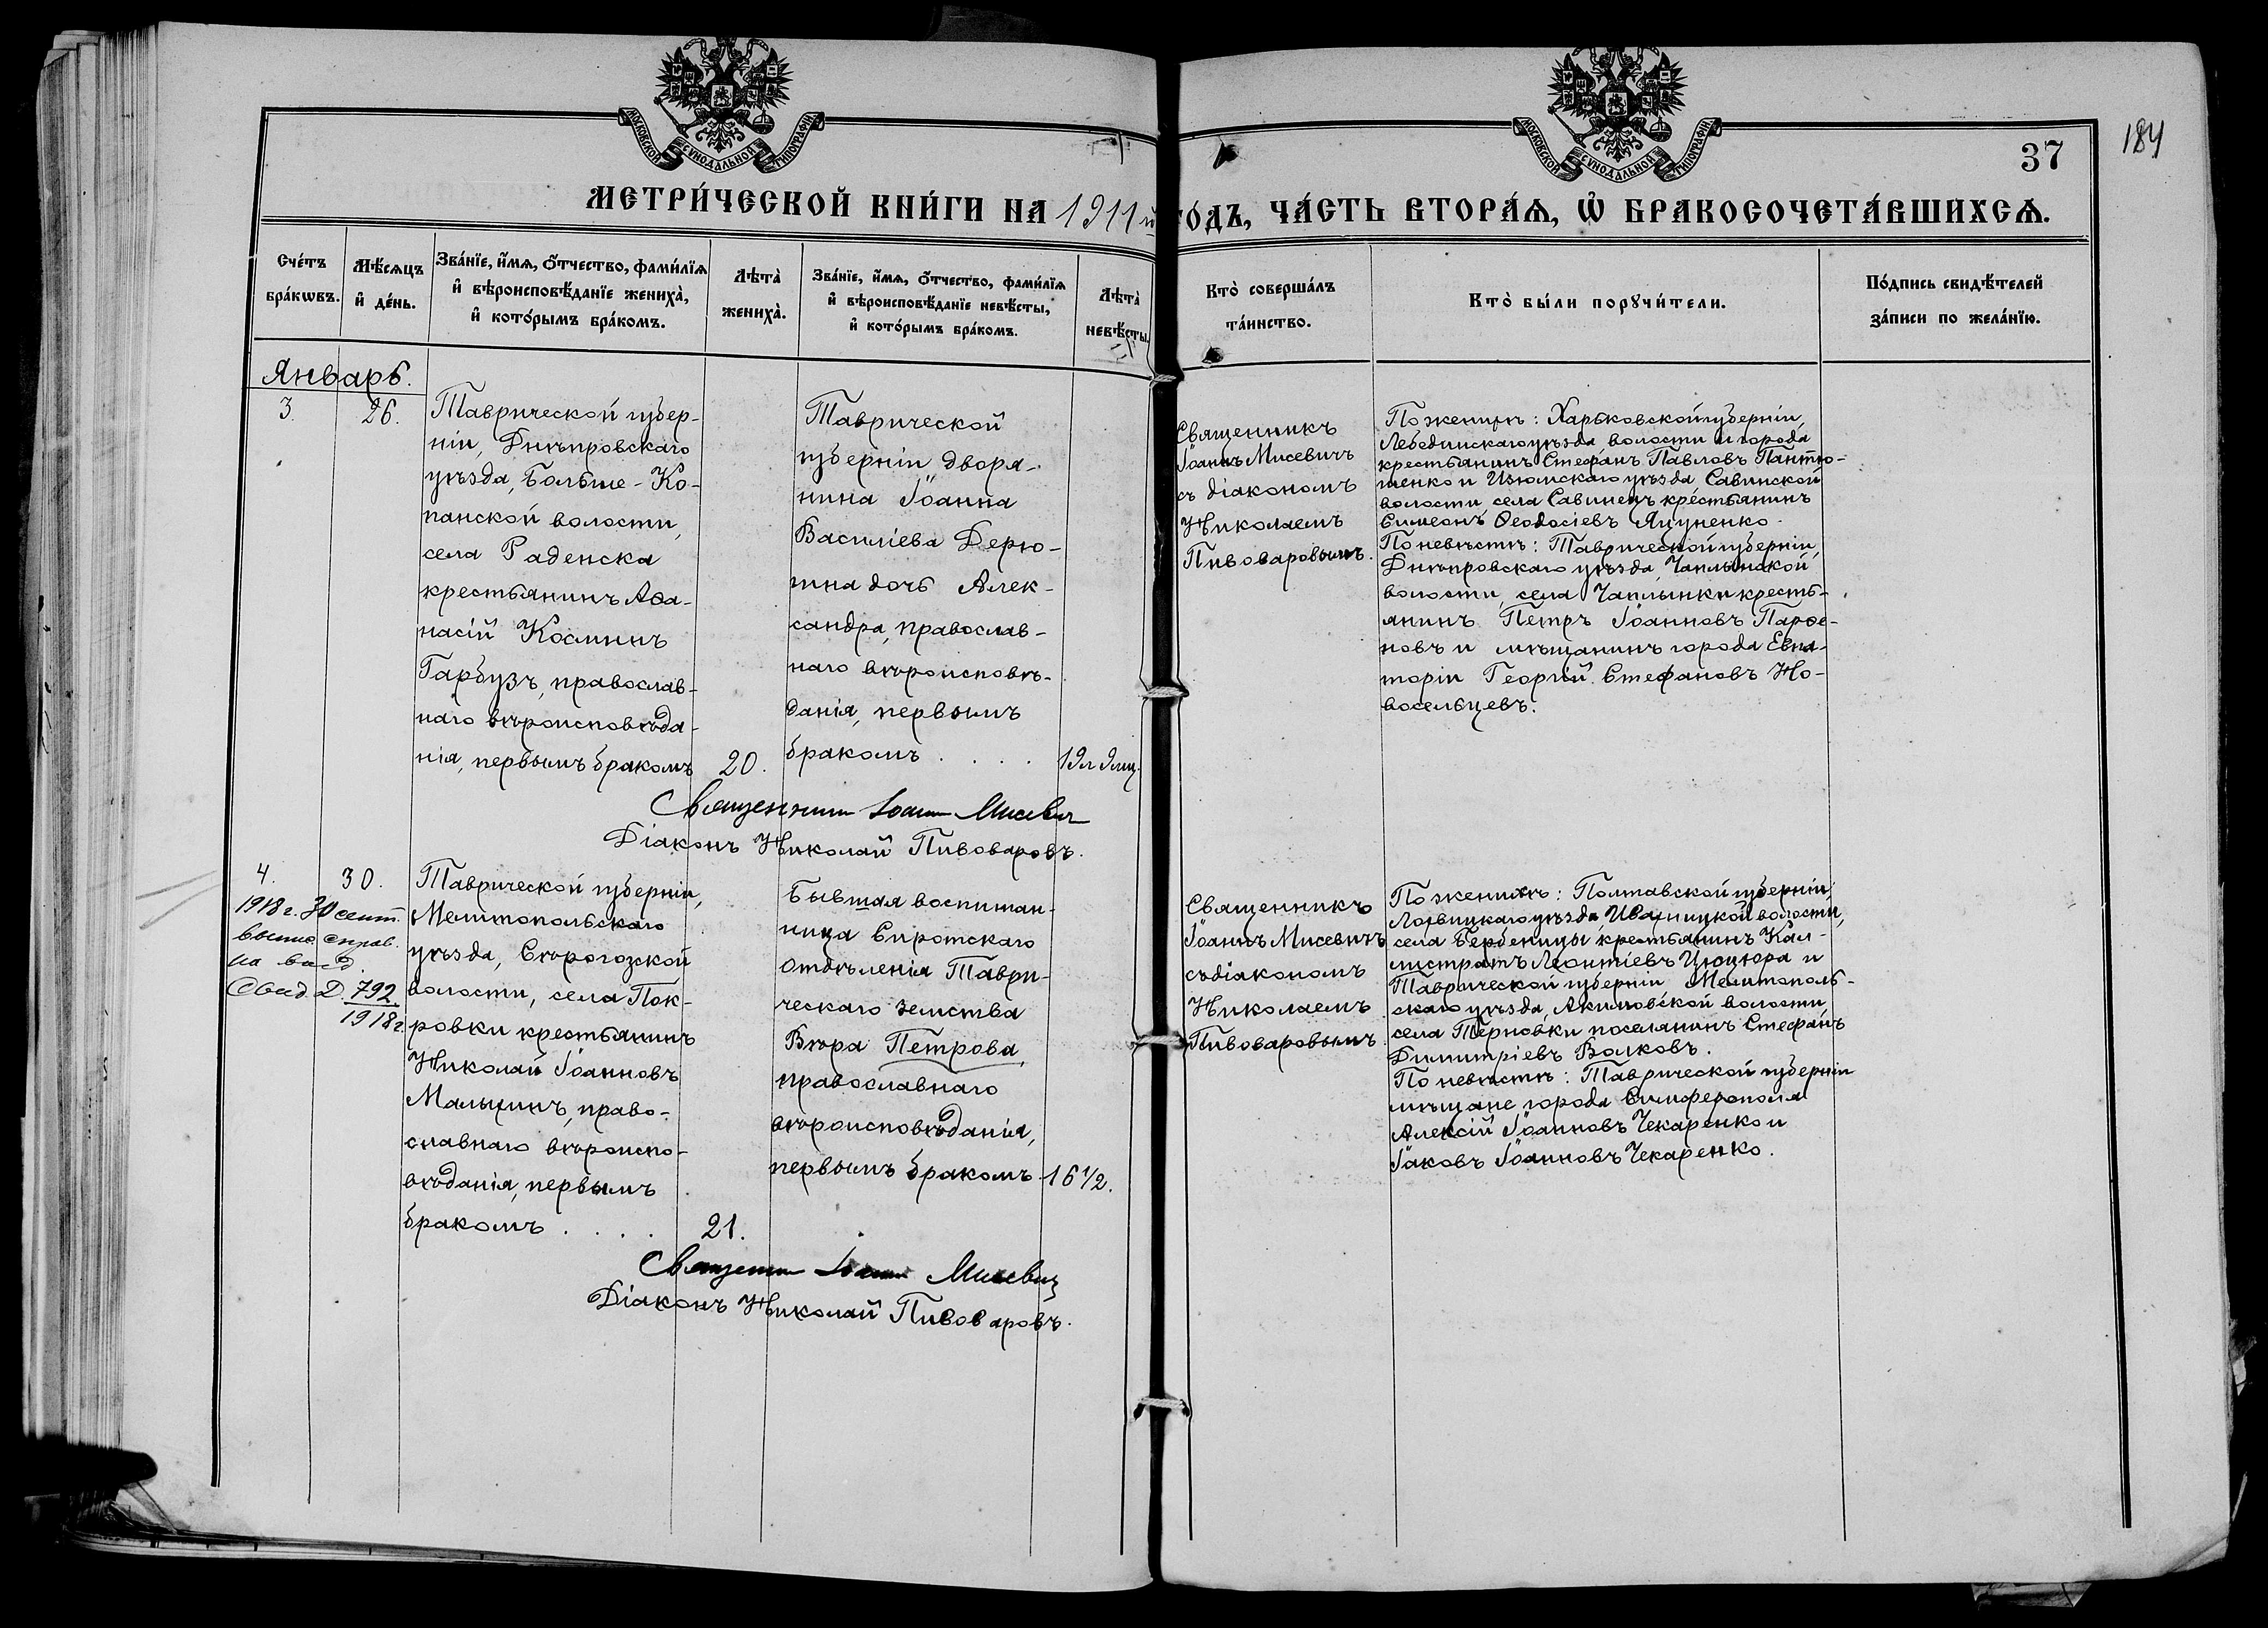 МОСКОВСКОЙ СѴНОДАЛЬНОЙ ТИПОГРАФІИ
МОСКОВСКОЙ СѴНОДАЛЬНОЙ ТИПОГРАФІИ
184
37
МЕТРИ́ЧЕСКОЙ КНИ́ГИ НА 1911й ГО́ДЪ, ЧА́СТЬ ВТОРА́Ѧ, Ѡ҆ БРАКОСОЧЕТА́ВШИХСѦ.
Сче́тъ
бра́кѡвъ.
Мѣ́сѧцъ
и҆ де́нь.
Зва́нїе, и҆́мѧ, ѻ҆́тчество, фами́лїѧ
и҆ вѣроисповѣ́данїе жениха̀,
и҆ кото́рымъ бра́комъ.
Лѣта̀
жениха̀.
Зва́нїе, и҆́мѧ, ѻ҆́тчество, фами́лїѧ
и҆ вѣроисповѣ́данїе невѣ́сты,
и҆ кото́рымъ бра́комъ.
Лѣта̀
невѣ́сты.
Кто̀ соверша́лъ
та́инство.
Кто̀ бы́ли порꙋчи́тели.
По́дпись свидѣ́телей
за́писи по жела́нїю.
Январь.
3.
26.
Таврической губер-
ніи, Днѣпровскаго
уѣзда, Больше-Ко-
панской волости,
села Раденска
крестьянинъ Аѳа-
насій Косминъ
Гарбузъ, православ-
наго вѣроисповѣда-
нія, первымъ бракомъ
20.
Таврической
губерніи дворя-
нина Іоанна
Василіева Дерю-
гина дочь Алек-
сандра, православ-
наго вѣроисповѣ-
данія, первымъ
бракомъ . . . .
19л 9мц.
Священникъ
Іоаннъ Мисевичъ
съ діакономъ
Николаемъ
Пивоваровымъ.
По женихѣ: Харьковской губерніи,
Лебединскаго уѣзда волости и города
крестьянинъ Стефанъ Павловъ Пантю-
шенко и Изюмскаго уѣзда Савинской
волости, села Савинецъ крестьянинъ
Симеонъ Ѳеодосіевъ Яцуненко.
По невѣстѣ: Таврической губерніи,
Днѣпровскаго уѣзда, Чаплынской
волости, села Чаплынки кресть-
янинъ Петръ Іоанновъ Парѳе-
новъ и мѣщанинъ города Евпа-
торіи Георгій Стефановъ Но-
восельцевъ.
Священникъ Іоаннъ Мисевич
Діаконъ Николай Пивоваровъ.
4.
30.
1918 г. 30 сент.
выдано справ.
на
Свид. Д 792
1918 г.
Таврической губерніи,
Мелитопольскаго
уѣзда, Сѣрогозской
волости, села Пок-
ровки крестьянинъ
Николай Іоанновъ
Малыхинъ, право-
славнаго вѣроиспо-
вѣданія, первымъ
бракомъ . . . .
21.
Бывшая воспитан-
ница Сиротскаго
Отдѣленія Таври-
ческаго Земства
Вѣра Петрова,
православнаго
вѣроисповѣданія,
первымъ бракомъ.
16 1/2.
Священникъ
Іоаннъ Мисевичъ
съ діакономъ
Николаемъ
Пивоваровымъ.
По женихѣ: Полтавской губерніи,
Лохвицкаго уѣзда, Ивахницкой волости,
села Бербеницы крестьянинъ Кал-
листратъ Леонтіевъ Цюцюра и
Таврической губерніи, Мелитополь-
скаго уѣзда, Акимовской волости
села Терновки поселянинъ Стефанъ
Димитріевъ Волковъ.
По невѣстѣ: Таврической губерніи
мѣщане города Симферополя
Алексій Іоанновъ Чекаренко и
Іаковъ Іоанновъ Чекаренко.
Священникъ Іоаннъ Мисевич
Діаконъ Николай Пивоваровъ.